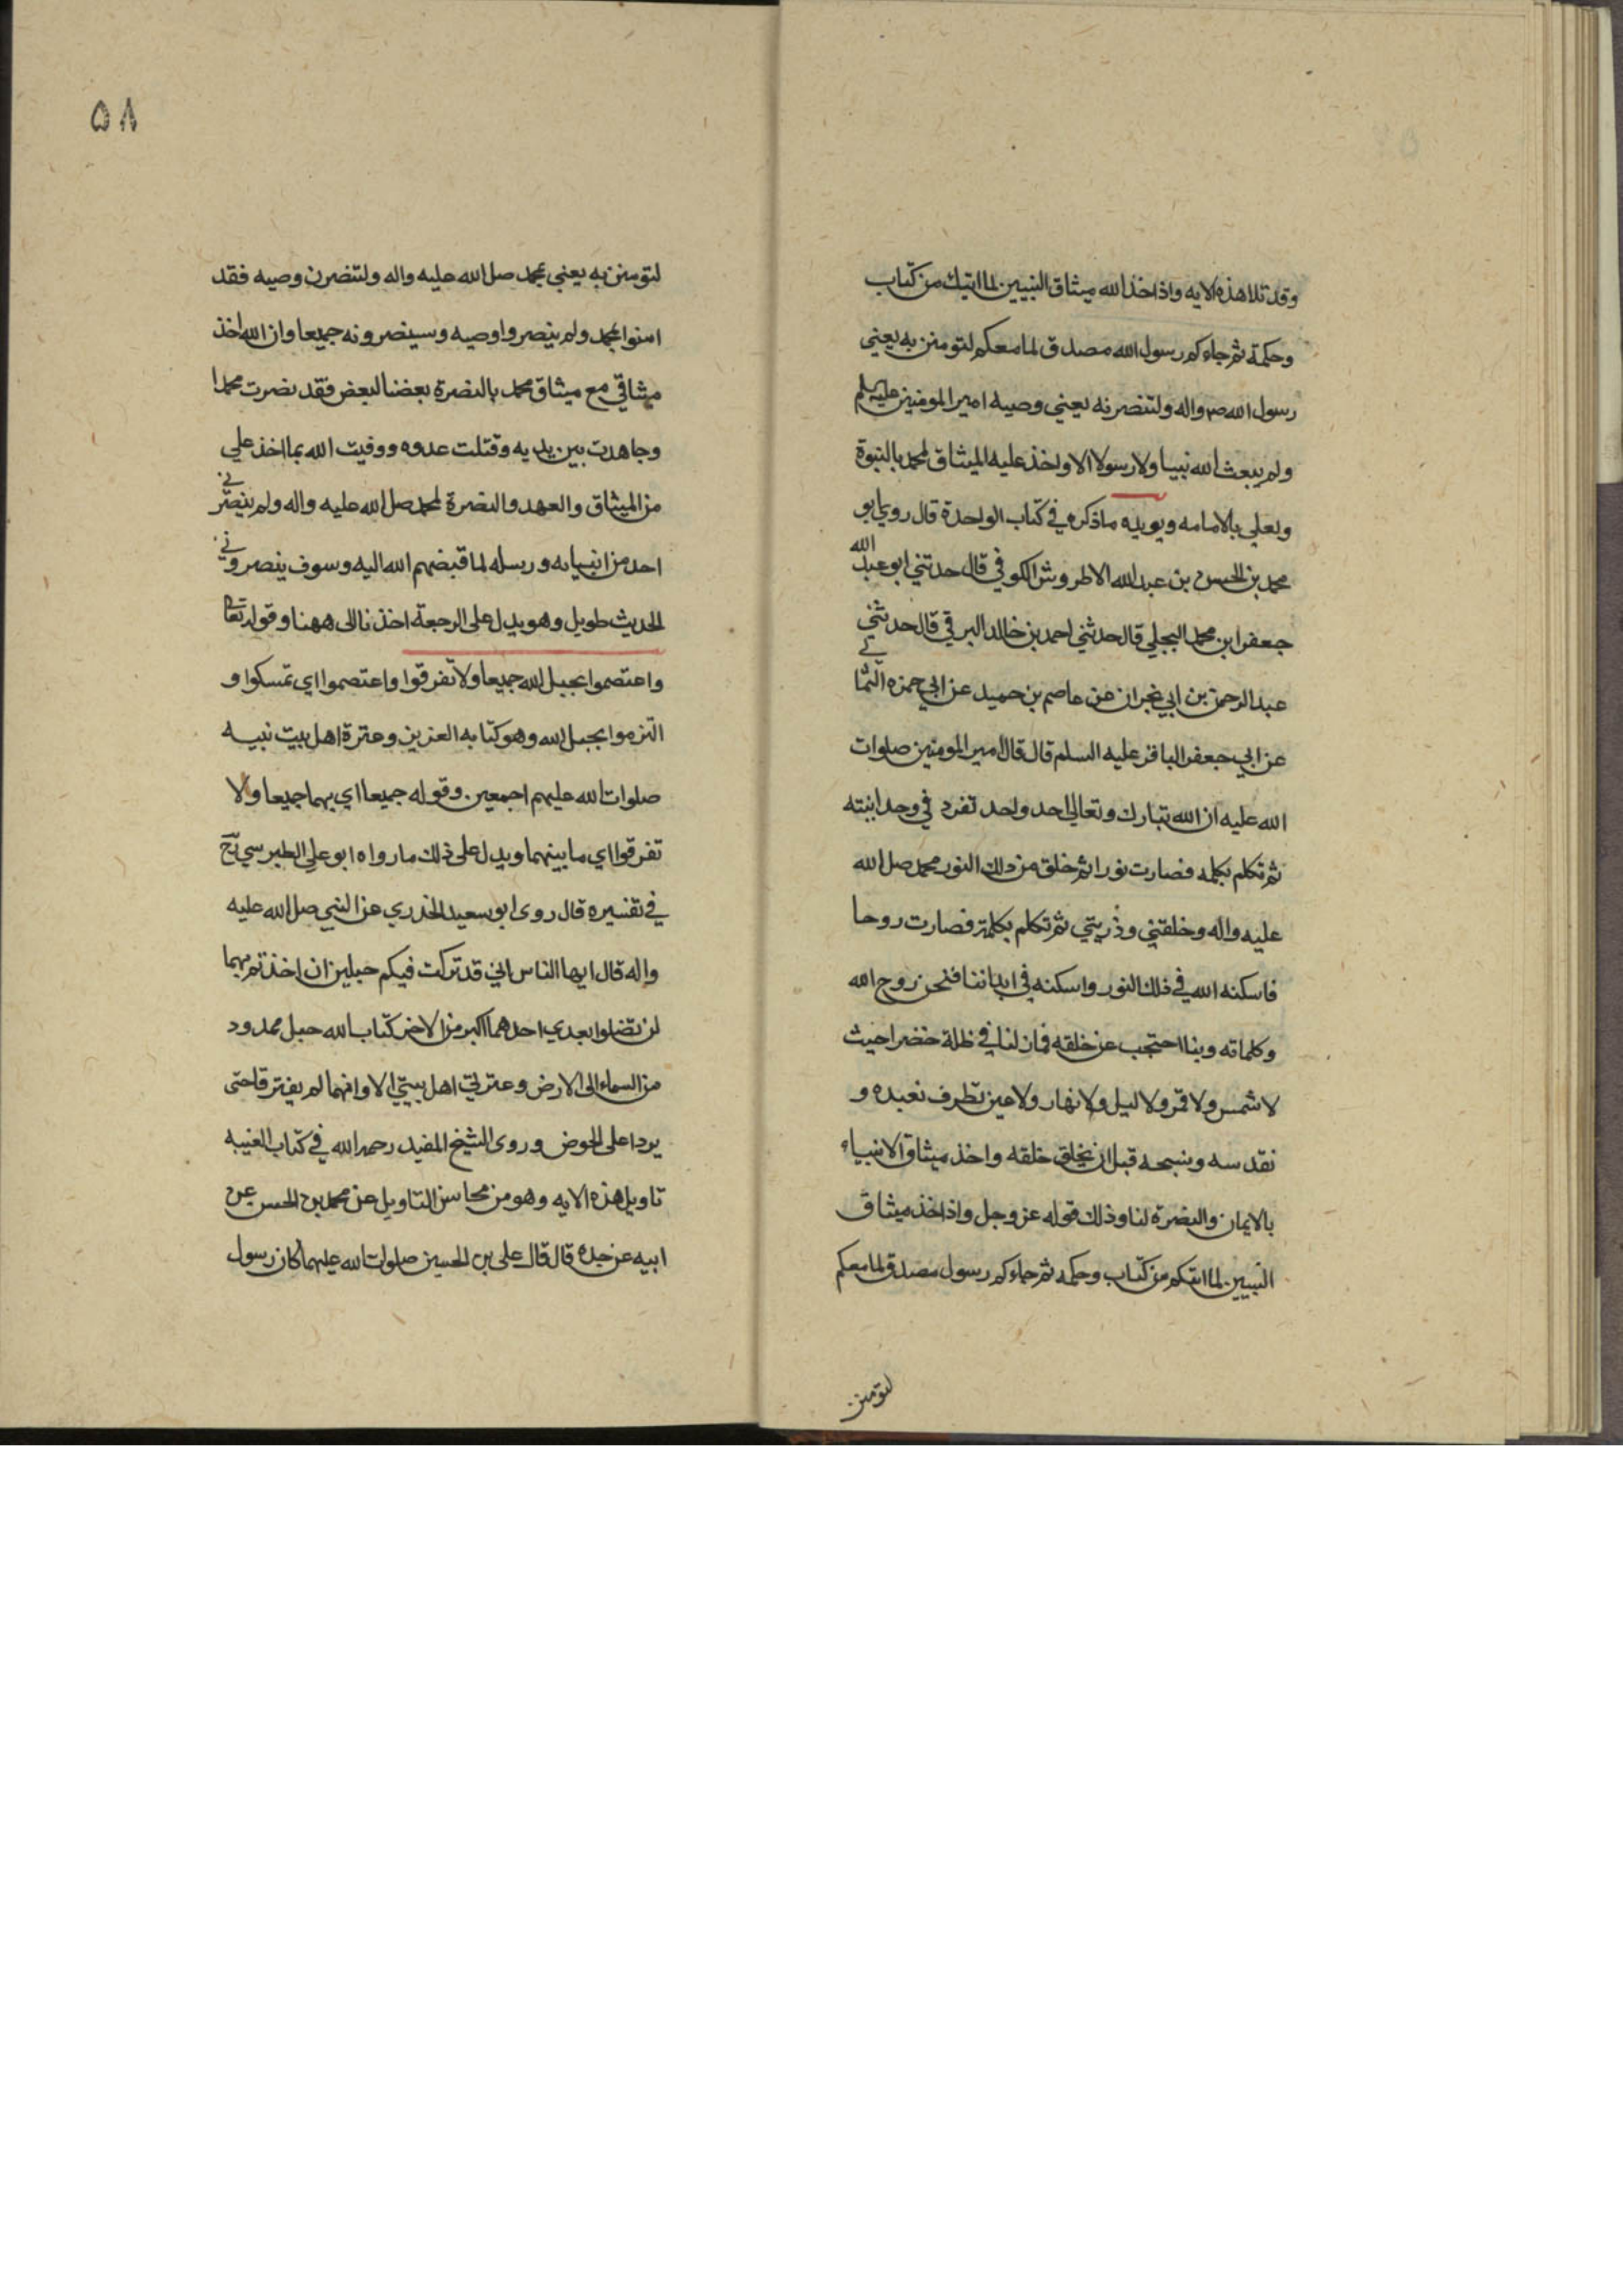 وقد تلا هذه الايه واذ اخذ الله ميثاق النبيين لما اتيتك من كتاب
وحكمة ثم جاءكم رسول الله مصدق لما معكم لتومنن به يعني
رسول الله ص واله ولتنصرنه يعني وصيه امير المومنين عليه السلم
ولم يبعث الله نبيا ولا رسولا الا واخذ عليه الميثاق لمحمد بالنبوة
ولعلي بالامامه ويويده ما ذكره في كتاب الواحدة قال روي ابو
محمد بن الحسن بن عبد الله الاطروش الكوفي قال حدثني ابو عبد الله
جعفر ابن محمد البجلي قال حدثني احمد بن خالد البرقي قال حدثني
عبد الرحمن بن ابي نجران عن عاصم بن حميد عن ابي حمزه الثمالي
عن ابي جعفر الباقر عليه السلم قال قال امير المومنين صلوات
الله عليه ان الله تبارك وتعالى احد واحد تفرد في وحدانيته
ثم تكلم بكلمه فصارت نورا ثم خلق من ذلك النور محمد صل الله
عليه واله وخلقني وذريتي ثم تكلم بكلمة فصارت روحا
فاسكنه الله في ذلك النور واسكنه في ابداننا فنحن روح الله
وكلماته وبنا احتجب عن خلقه فما زلنا في ظلة خضرا حيث
لا شمس ولا قمر ولا ليل ولا نهار ولا عين تطرف نعبده و
نقدسه ونسبحه قبل ان يخلق خلقه واخذ ميثاق الانبياء
بالايمان والنصرة لنا وذلك قوله عز وجل واذ اخذ ميثاق
النبيين لما اتيتكم من كتاب وحكمه ثم جاءكم رسول مصدق لما معكم
لتومنن
٥٨
لتومنن به يعني بمحمد صل الله عليه واله ولتنصرن وصيه فقد
امنوا بمحمد ولم ينصروا وصيه وسينصرونه جميعا وان الله اخذ
ميثاقي مع ميثاق محمد بالنصرة بعضنا لبعض فقد نصرت محمدا
وجاهدت بين يديه وقتلت عدوه ووفيت الله بما اخذ علي
من الميثاق والعهد والنصرة لمحمد صل الله عليه واله ولم ينصرني
احد من انبيايه ورسله لما قبضهم الله اليه وسوف ينصروني
الحديث طويل وهو يدل على الرجعة اخذنا الى ههنا وقوله تعالى
واعتصموا بحبل الله جميعا ولا تفرقوا واعتصموا اي تمسكوا و
التزموا بحبل الله وهو كتابه العزيز وعترة اهل بيت نبيه
صلوات الله عليهم اجمعين وقوله جميعا اي بهما جميعا ولا
تفرقوا اي ما بينهما ويدل على ذلك ما رواه ابو علي الطبرسي
في تفسيره قال روى ابو سعيد الخدري عن النبي صل الله عليه
واله قال ايها الناس اني قد تركت فيكم حبلين ان اخذتم بهما
لن تضلوا بعدي احدهما اكبر من الاخر كتاب الله حبل ممدود
من السماء الى الارض وعترتي اهل بيتي الا وانهما لم يفترقا حتى
يردا على الحوض وروى الشيخ المفيد رحمه الله في كتاب الغيبه
تاويل هذه الايه وهو من محاسن التاويل عن محمد بن الحسن عن
ابيه عن جده قال قال على بن الحسين صلوات الله عليهما كان رسول